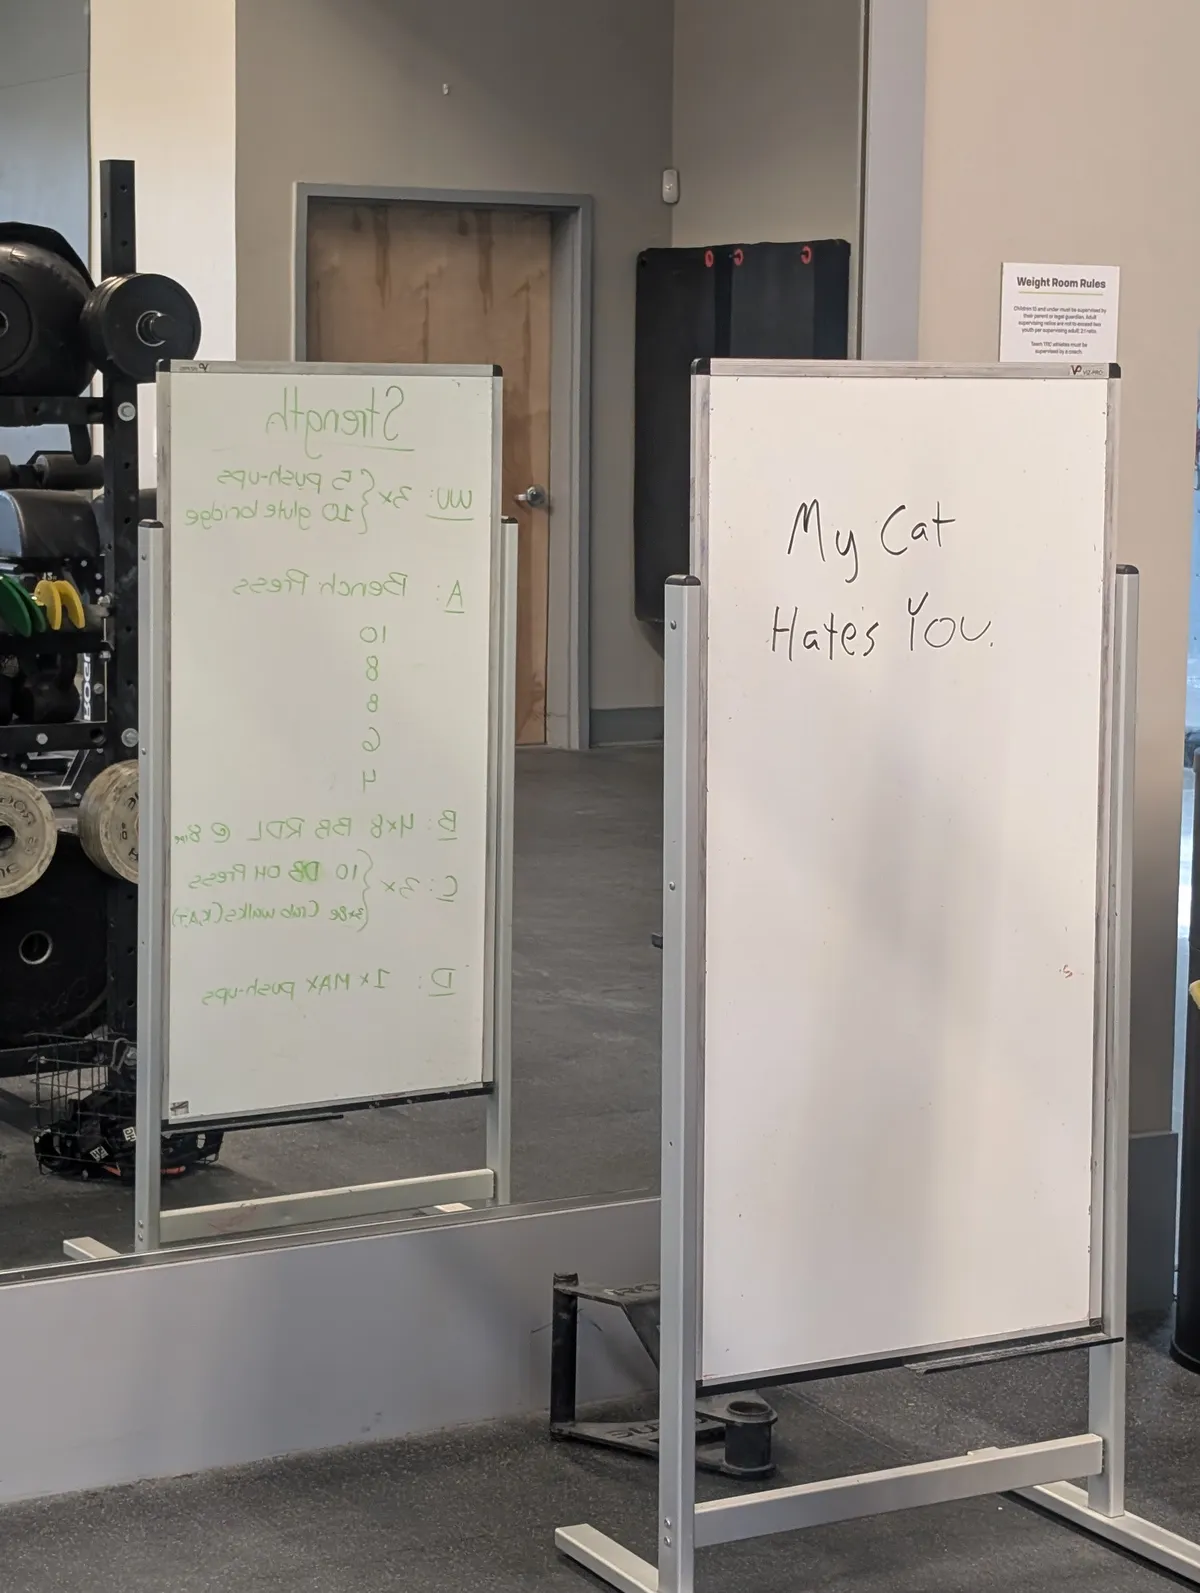 Strength
WU: 3x { 5 push-ups
{ 10 glute bridge
A: Bench Press
10
8
8
6
4
B: 4x8 BB RDL @ 8
C: 3x { 10 DB OH Press
{ 3x8e Crab walks (K,A,T)
D: 1x MAX push-ups
Weight Room Rules
Children 13 and under must be supervised by
their parent or legal guardian. Adult
supervising ratios are not to exceed two
youth per supervising adult: 2:1 ratio.
Team YRC athletes must be
supervised by a coach.
VIZ-PRO
My Cat
Hates You.